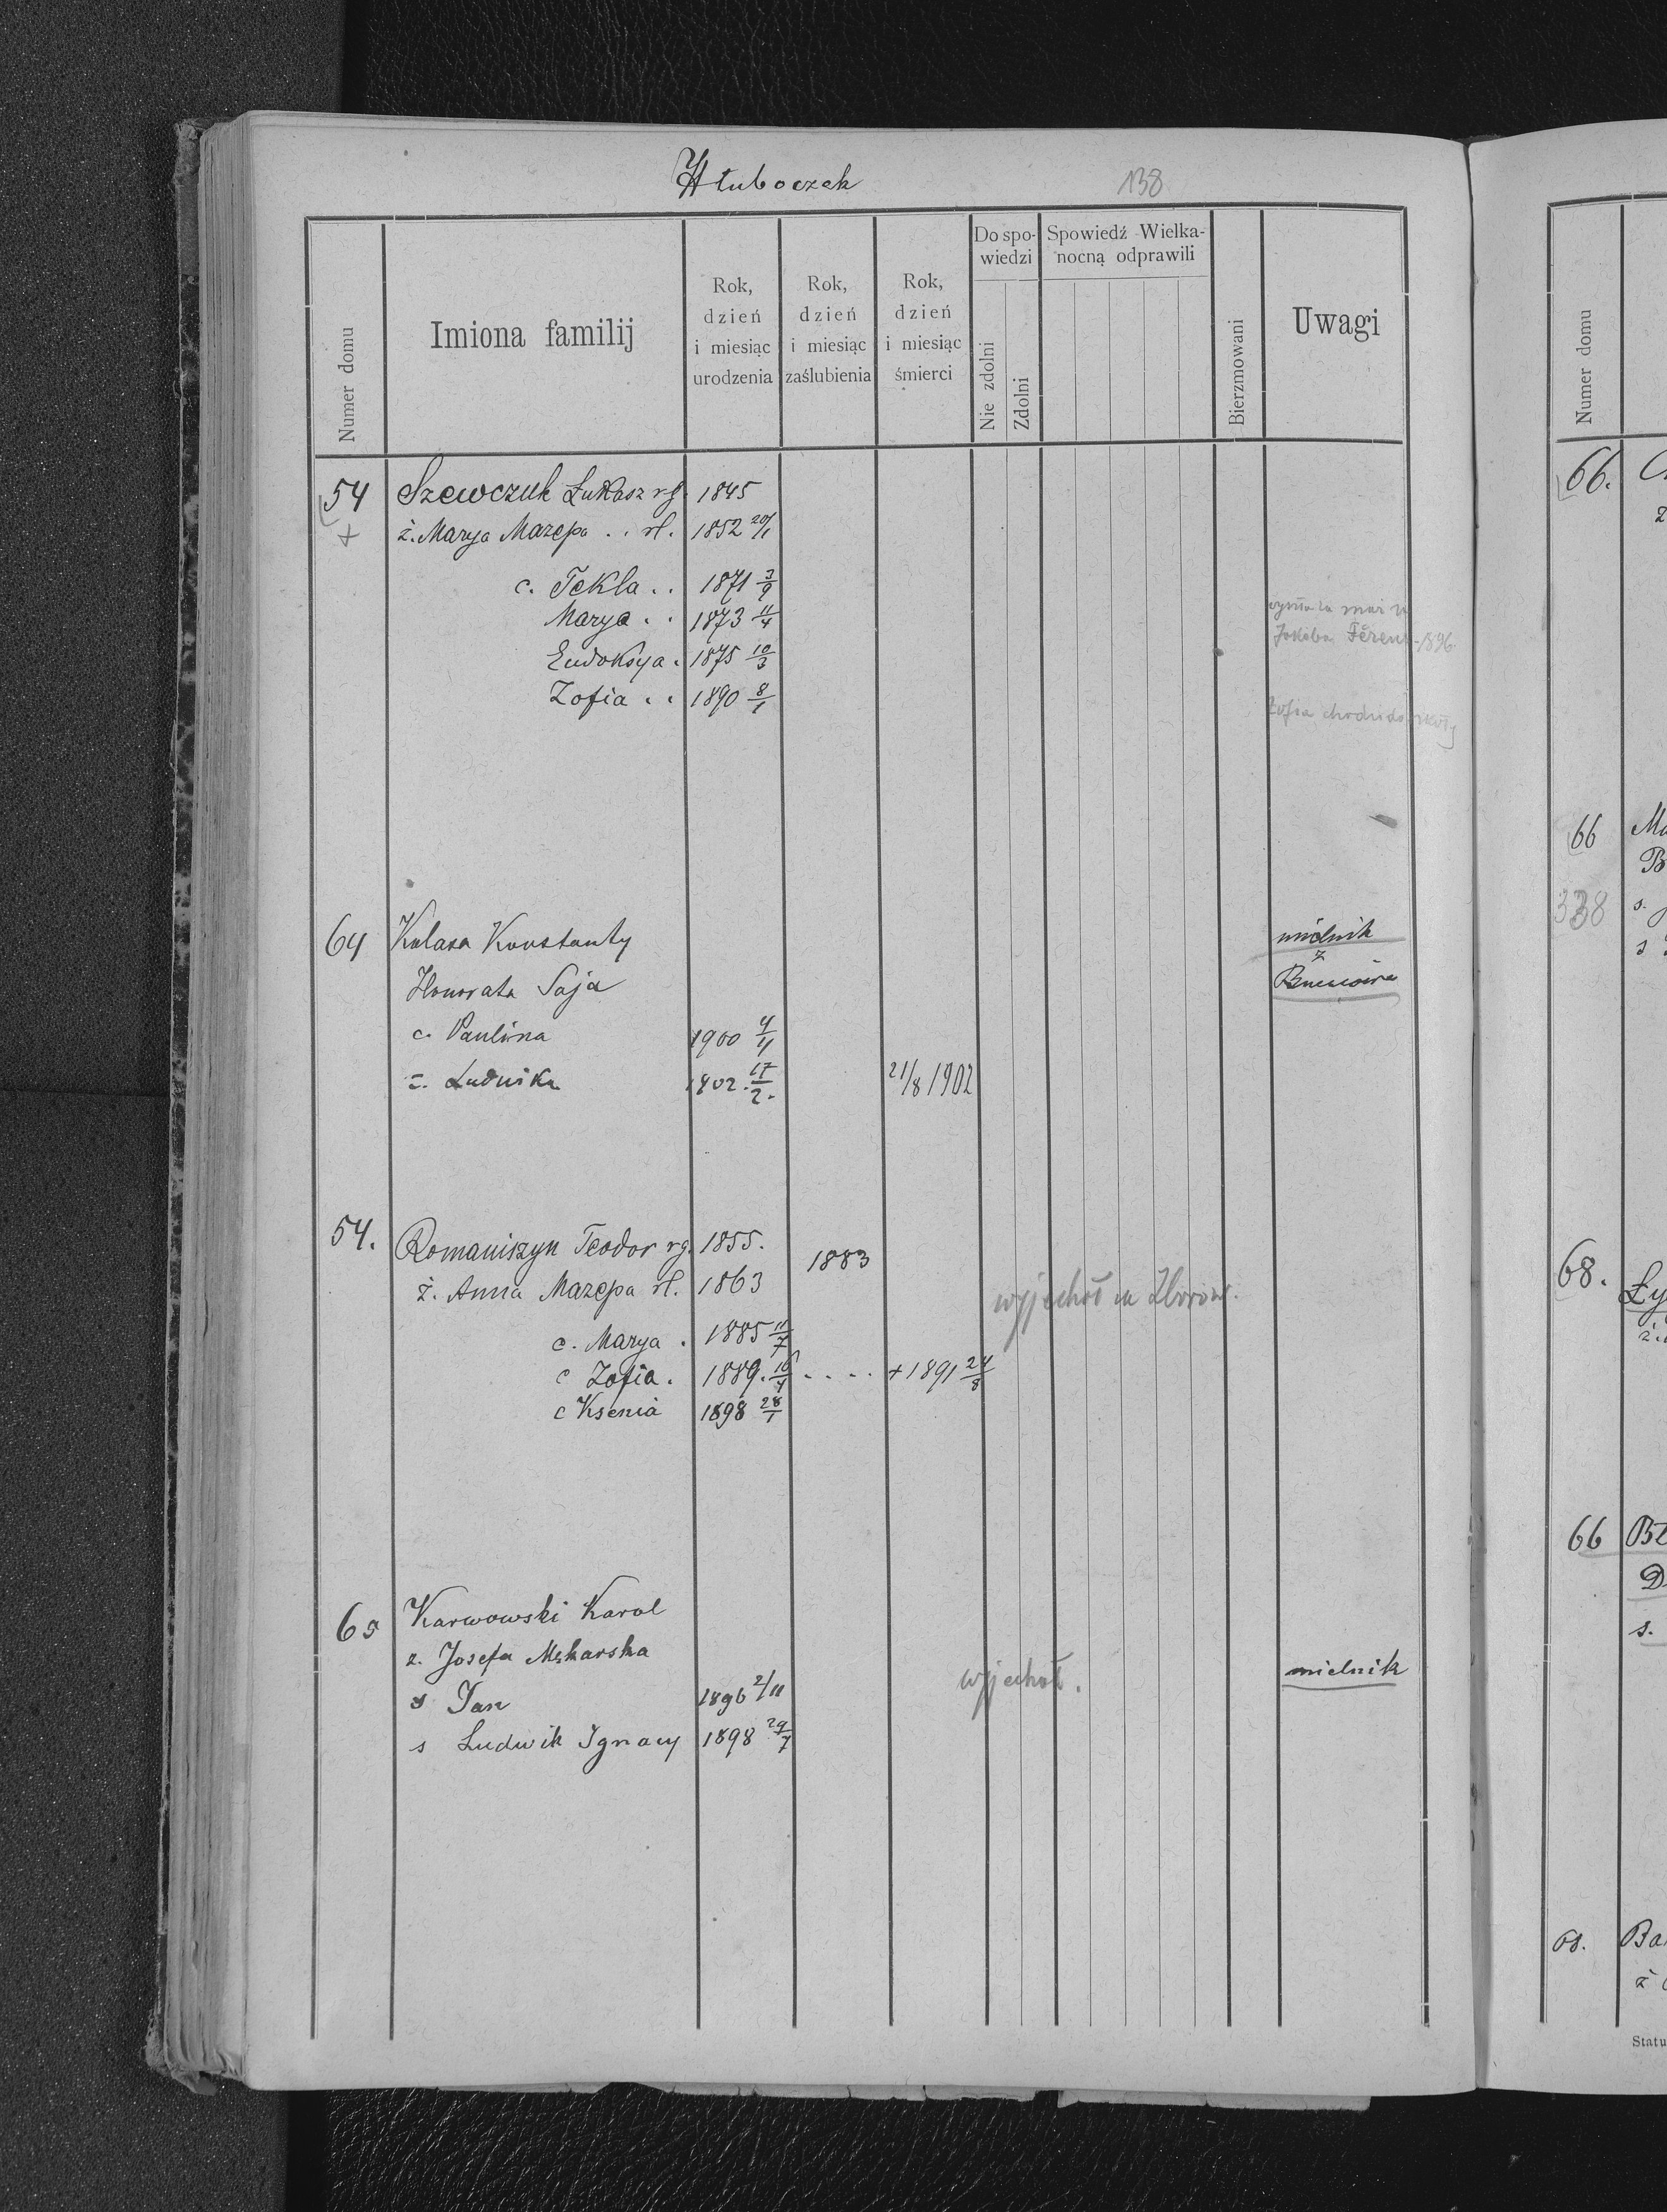 Hłuboczek 138
Numer domu
Imiona familij
Rok, dzień i miesiąc urodzenia
Rok, dzień i miesiąc zaślubienia
Rok, dzień i miesiąc śmierci
Do spowiedzi
Nie zdolni
Zdolni
Spowiedź Wielkanocną odprawili
Bierzmowani
Uwagi
54 Szewczuk Łukasz rg. 1845
+ ż. Marya Mazepa . . rl. 1852 20/1
c. Tekla . . 1871 3/9
Marya . . 1873 11/4
Jakóba 1896
Eudoksya . 1875 10/3
Zofia . . 1890 8/1
Zofia
64 Kulasa Konstanty
Honorata Saja
c. Paulina 1900 4/4
c. Ludwika 1902. 17/2. 21/8 1902
54. Romaniszyn Teodor rg. 1855. 1883
ż. Anna Mazepa rl. 1863
wyjechał
c. Marya . 1885 11/7
c Zofia . 1889. 16/4 . . . . + 1891 24/8
c Ksenia 1898 28/1
65 Karwowski Karol
z. Josefa Mękarska mielnik
s Jan 1896 2/11 wyjechał.
s Ludwik Ignacy 1898 29/7
Numer domu
66.
66 Ma
B
338 s.
s
68. Ły
ż.
66
D
s.
68. Ba
ż
Statu